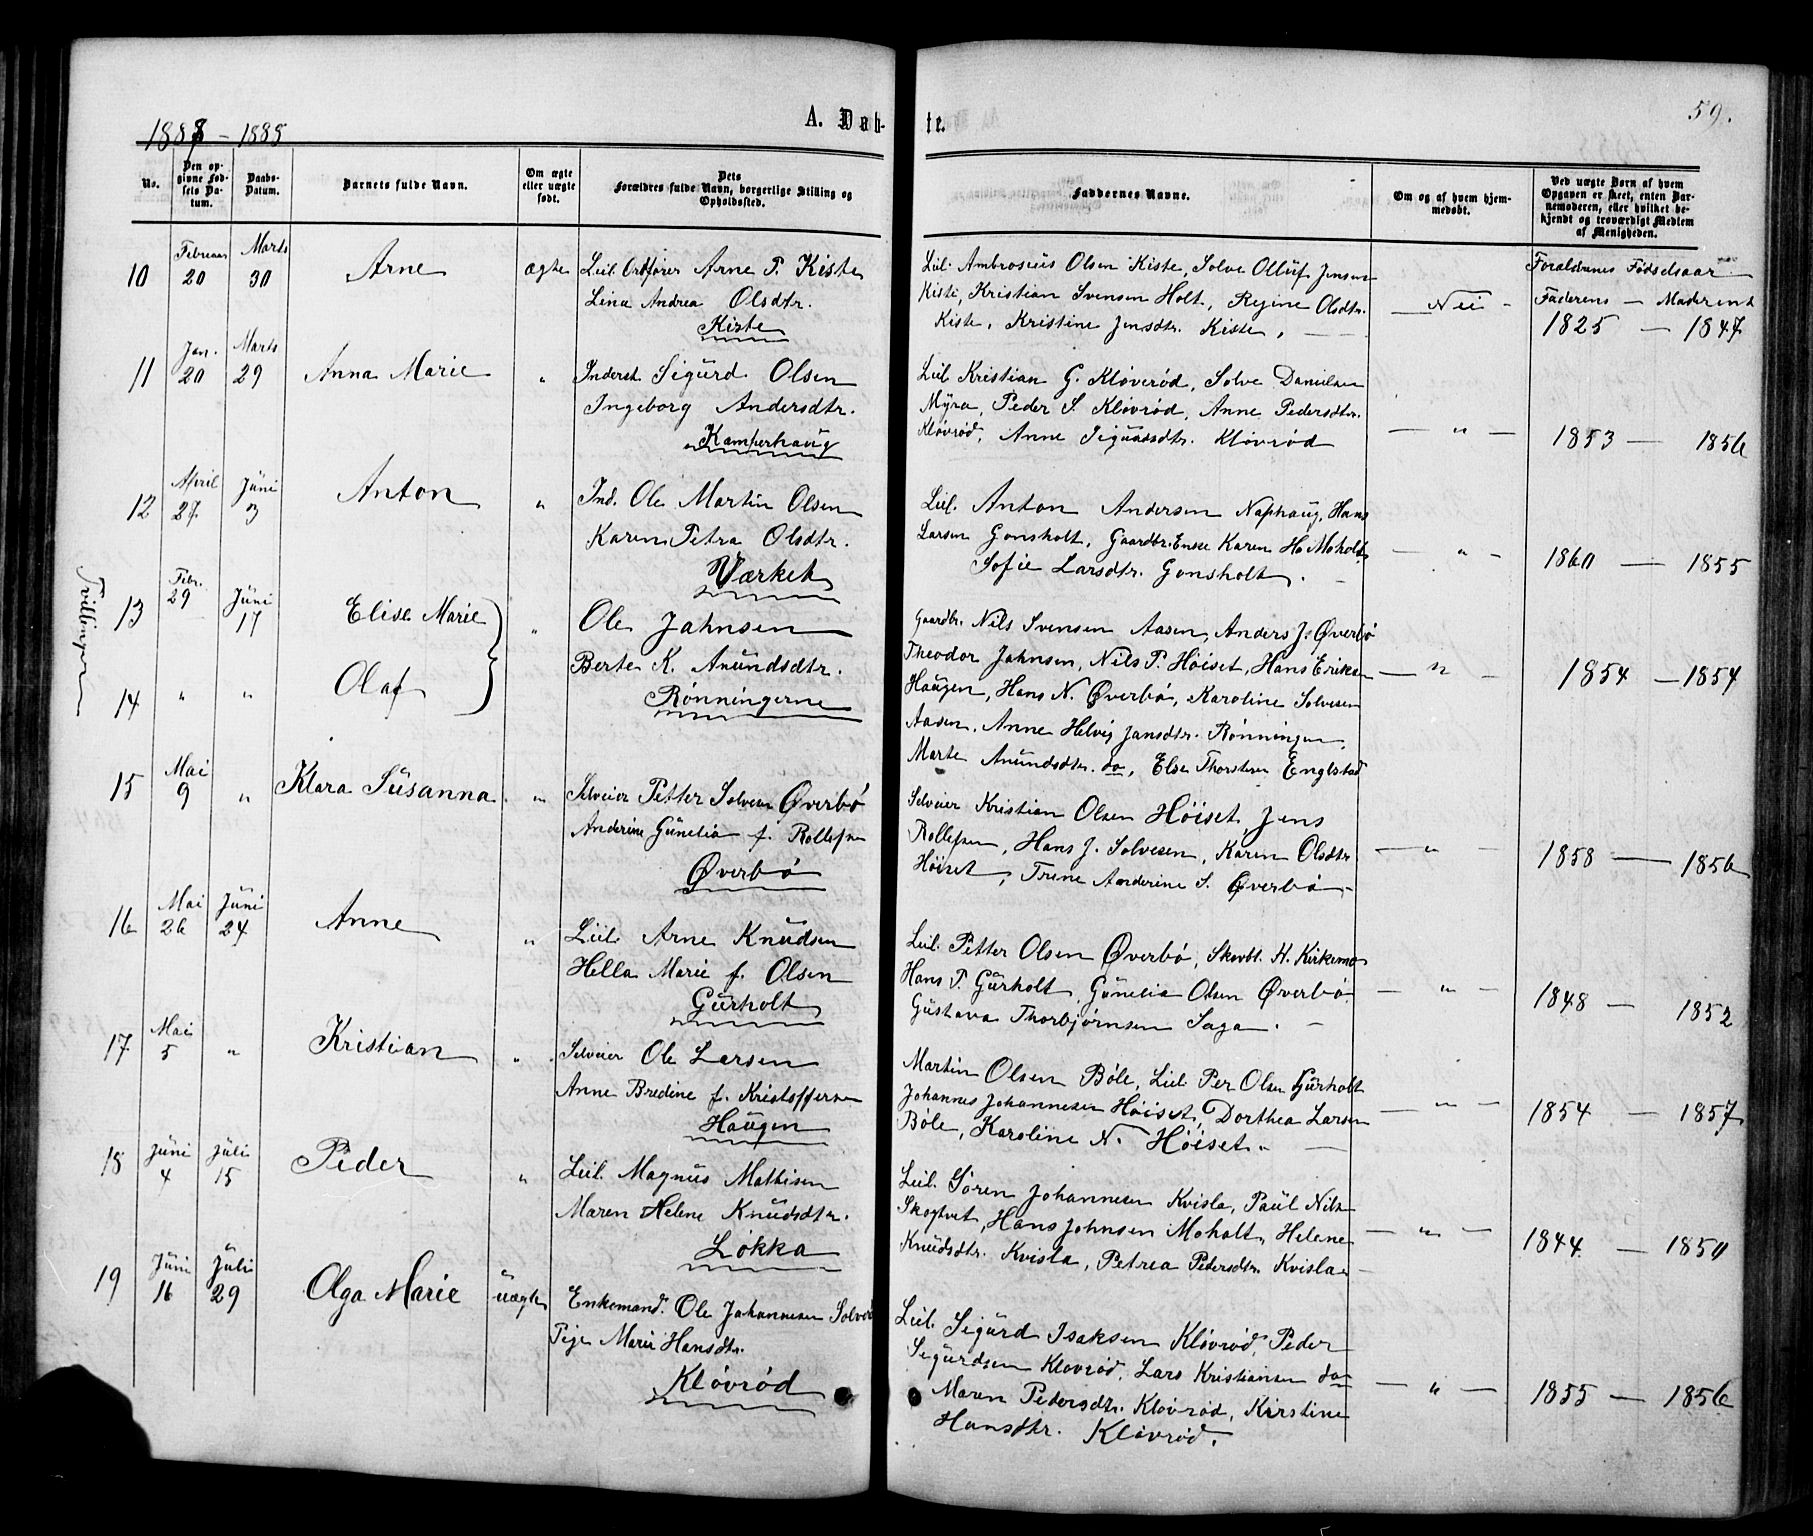 59.
1888 - 1889
A. Døb- te.
No.
Den op-
givne Fød-
sels Da-
tum.
Daabs-
Datum.
Barnets fulde Navn.
Om ægte
eller uægte
født.
Dets
Forældres fulde Navn, borgerlige Stilling og
Opholdssted.
Faddernes Navne.
Om og af hvem hjem-
medøbt.
Ved uægte Børn af hvem
Opgaven er skeet, enten Bar-
nemoderen, eller hvilket be-
kjendt og troværdigt Medlem
af Menigheden.
10 Februar 20 Marts 30 Arne ægte Leil. Ordfører Arne P. Kiste
Lina Andrea Olsdtr.
Kiste
Leil. Ambrosius Olsen Kiste, Solve Olluf Jensen
Kiste, Kristian Svensen Holt, Regine Olsdtr.
Kiste, Kristine Jensdtr. Kiste.
Nei
Forældrenes Fødselsaar
Faderens - Moderens
1825 - 1847
11 Jan. 20 Marts 29 Anna Marie " Inderst Sigurd Olsen
Ingeborg Andersdtr.
Kamperhaug
Leil Kristian G. Kløverød, Solve Danielsen
Myra, Peder S. Kløvrød, Anne Pedersdtr.
Kløvrød, Anne Sigurdsdtr. Kløvrød
- " - 1853 - 1856
12 April 27. Juni 3 Anton " Ind. Ole Martin Olsen
Karen Petra Olsdtr.
Værket
Leil. Anton Andersen Naphaug, Hans
Larsen Gonsholt, Gaardbr. Enke Karen H. Moholt
Sofie Larsdtr. Gonsholt.
- " - 1860 - 1855
Tvillinger
13 Febr. 29 Juni 17 Elise Marie " Ole Jahnsen
14 " " Olaf
Berte K. Anundsdtr.
Rønningerne
Gaardbr. Nils Svensen Aasen, Anders J. Øverbø
Theodor Jahnsen, Nils P. Høiset, Hans Eriksen
Haugen, Hans N. Øverbø, Karoline Solvesen
Aasen, Anne Helvig Jansdtr. Rønningen,
Marte Anundsdtr. do, Else Thorsten Englstad
- " - 1854 - 1854
15 Mai 9 " Klara Susanna " Selveier Petter Solvesen Øverbø
Anderine Gunelia f. Rollefsen
Øverbø
Selveier Kristian Olsen Høiset, Jens
Rollefsen, Hans J. Solvesen, Karen Olsdtr
Høiset, Trine Anderine S. Øverbø
- " - 1858 - 1856
16 Mai 26 Juni 24 Anne " Leil. Arne Knudsen
Hella Marie f. Olsen
Gurholt
Leil. Petter Olsen Øverbø, Skovbt. H. Kirkemo
Hans P. Gurholt, Gunelia Olsen Øverbø
Gustava Thorbjørnsen Saga.
- " - 1848 - 1852
17 Mai 5 " Kristian " Selveier Ole Larsen
Anne Bredine f. Kristoffersen
Haugen
Martin Olsen Bøle, Leil. Per Olsen Gurholt
Johannes Johannesen Høiset, Dorthea Larsen
Bøle, Karoline N. Høiset.
- " - 1854 - 1857
18 Juni 4 Juli 15 Peder " Leil. Magnus Mathisen
Maren Helene Knudsdtr.
Løkka
Leil. Søren Johannesen Kvisla, Paul Nilsen
Skogtvet, Hans Johnsen Moholt, Helene
Knudsdtr. Kvisla, Petrea Pedersdtr. Kvisla
- " - 1844 - 1850
19 Juni 16 Juli 29 Olga Marie uægte Enkemand. Ole Johannesen Solverød
Pige Marie Hansdtr.
Kløvrød
Leil. Sigurd Isaksen Kløvrød, Peder
Sigurdsen Kløvrød, Lars Kristiansen do
Maren Pedersdtr. Kløvrød, Kirstine
Hansdtr. Kløvrød.
- " - 1855 - 1856